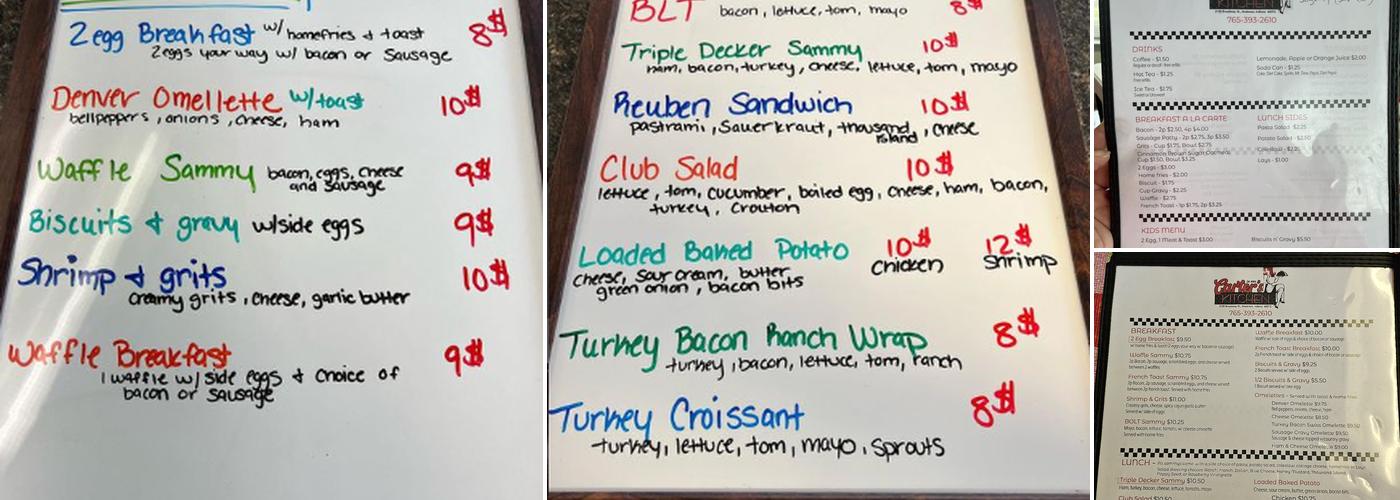 2 egg Breakfast w/ homefries & toast 8$
2 eggs your way w/ bacon or Sausage
Denver Omellette w/toast 10$
bellpeppers, onions, cheese, ham
Waffle Sammy bacon, eggs, cheese 9$
and sausage
Biscuits & gravy w/side eggs 9$
Shrimp & grits 10$
creamy grits, cheese, garlic butter
Waffle Breakfast 9$
1 waffle w/ side eggs & choice of
bacon or sausage
BLT bacon, lettuce, tom, mayo 8$
Triple Decker Sammy 10$
ham, bacon, turkey, cheese, lettuce, tom, mayo
Reuben Sandwich 10$
pastrami, Sauerkraut, thousand island, cheese
Club Salad 10$
lettuce, tom, cucumber, boiled egg, cheese, ham, bacon,
turkey, crouton
Loaded Baked Potato 10$ 12$
cheese, sour cream, butter, chicken shrimp
green onion, bacon bits
Turkey Bacon Ranch Wrap 8$
turkey, bacon, lettuce, tom, ranch
Turkey Croissant 8$
turkey, lettuce, tom, mayo, sprouts
KITCHEN
765-393-2610
DRINKS
Coffee - $1.50
Hot Tea - $1.25
Ice Tea - $1.75
Lemonade, Apple or Orange Juice $2.00
Soda Can - $1.25
BREAKFAST A LA CARTE
Bacon - 2p $2.50, 4p $4.00
Sausage Patty - 2p $2.75, 3p $3.50
Grits - Cup $1.75, Bowl $2.75
Cinnamon Brown Sugar Oatmeal
Cup $1.50, Bowl $3.25
2 Eggs - $3.00
Home fries - $2.00
Biscuit - $1.75
Cup Gravy - $2.25
Waffle - $2.75
French Toast - 1p $1.75, 2p $3.25
LUNCH SIDES
Pasta Salad - $2.25
Potato Salad - $2.50
Coleslaw - $2.25
Lays - $1.00
KIDS MENU
2 Egg, 1 Meat & Toast $3.00
Biscuits n' Gravy $5.50
Carter's
KITCHEN
765-393-2610
BREAKFAST
2 Egg Breakfast $9.50
Waffle Sammy $10.75
French Toast Sammy $10.75
Shrimp & Grits $11.00
BOLT Sammy $10.25
Waffle Breakfast $10.00
French Toast Breakfast $10.00
Biscuits & Gravy $9.25
1/2 Biscuits & Gravy $5.50
Omelettes - Served with toast & home fries
Denver Omelette $9.75
Cheese Omelette $8.50
Turkey Bacon Swiss Omelette $9.50
Sausage Gravy Omelette $9.50
Ham & Cheese Omelette $9.00
LUNCH
Triple Decker Sammy $10.50
Ham, turkey, bacon, cheese, lettuce, tomato, mayo
Loaded Baked Potato
Chicken $10.75